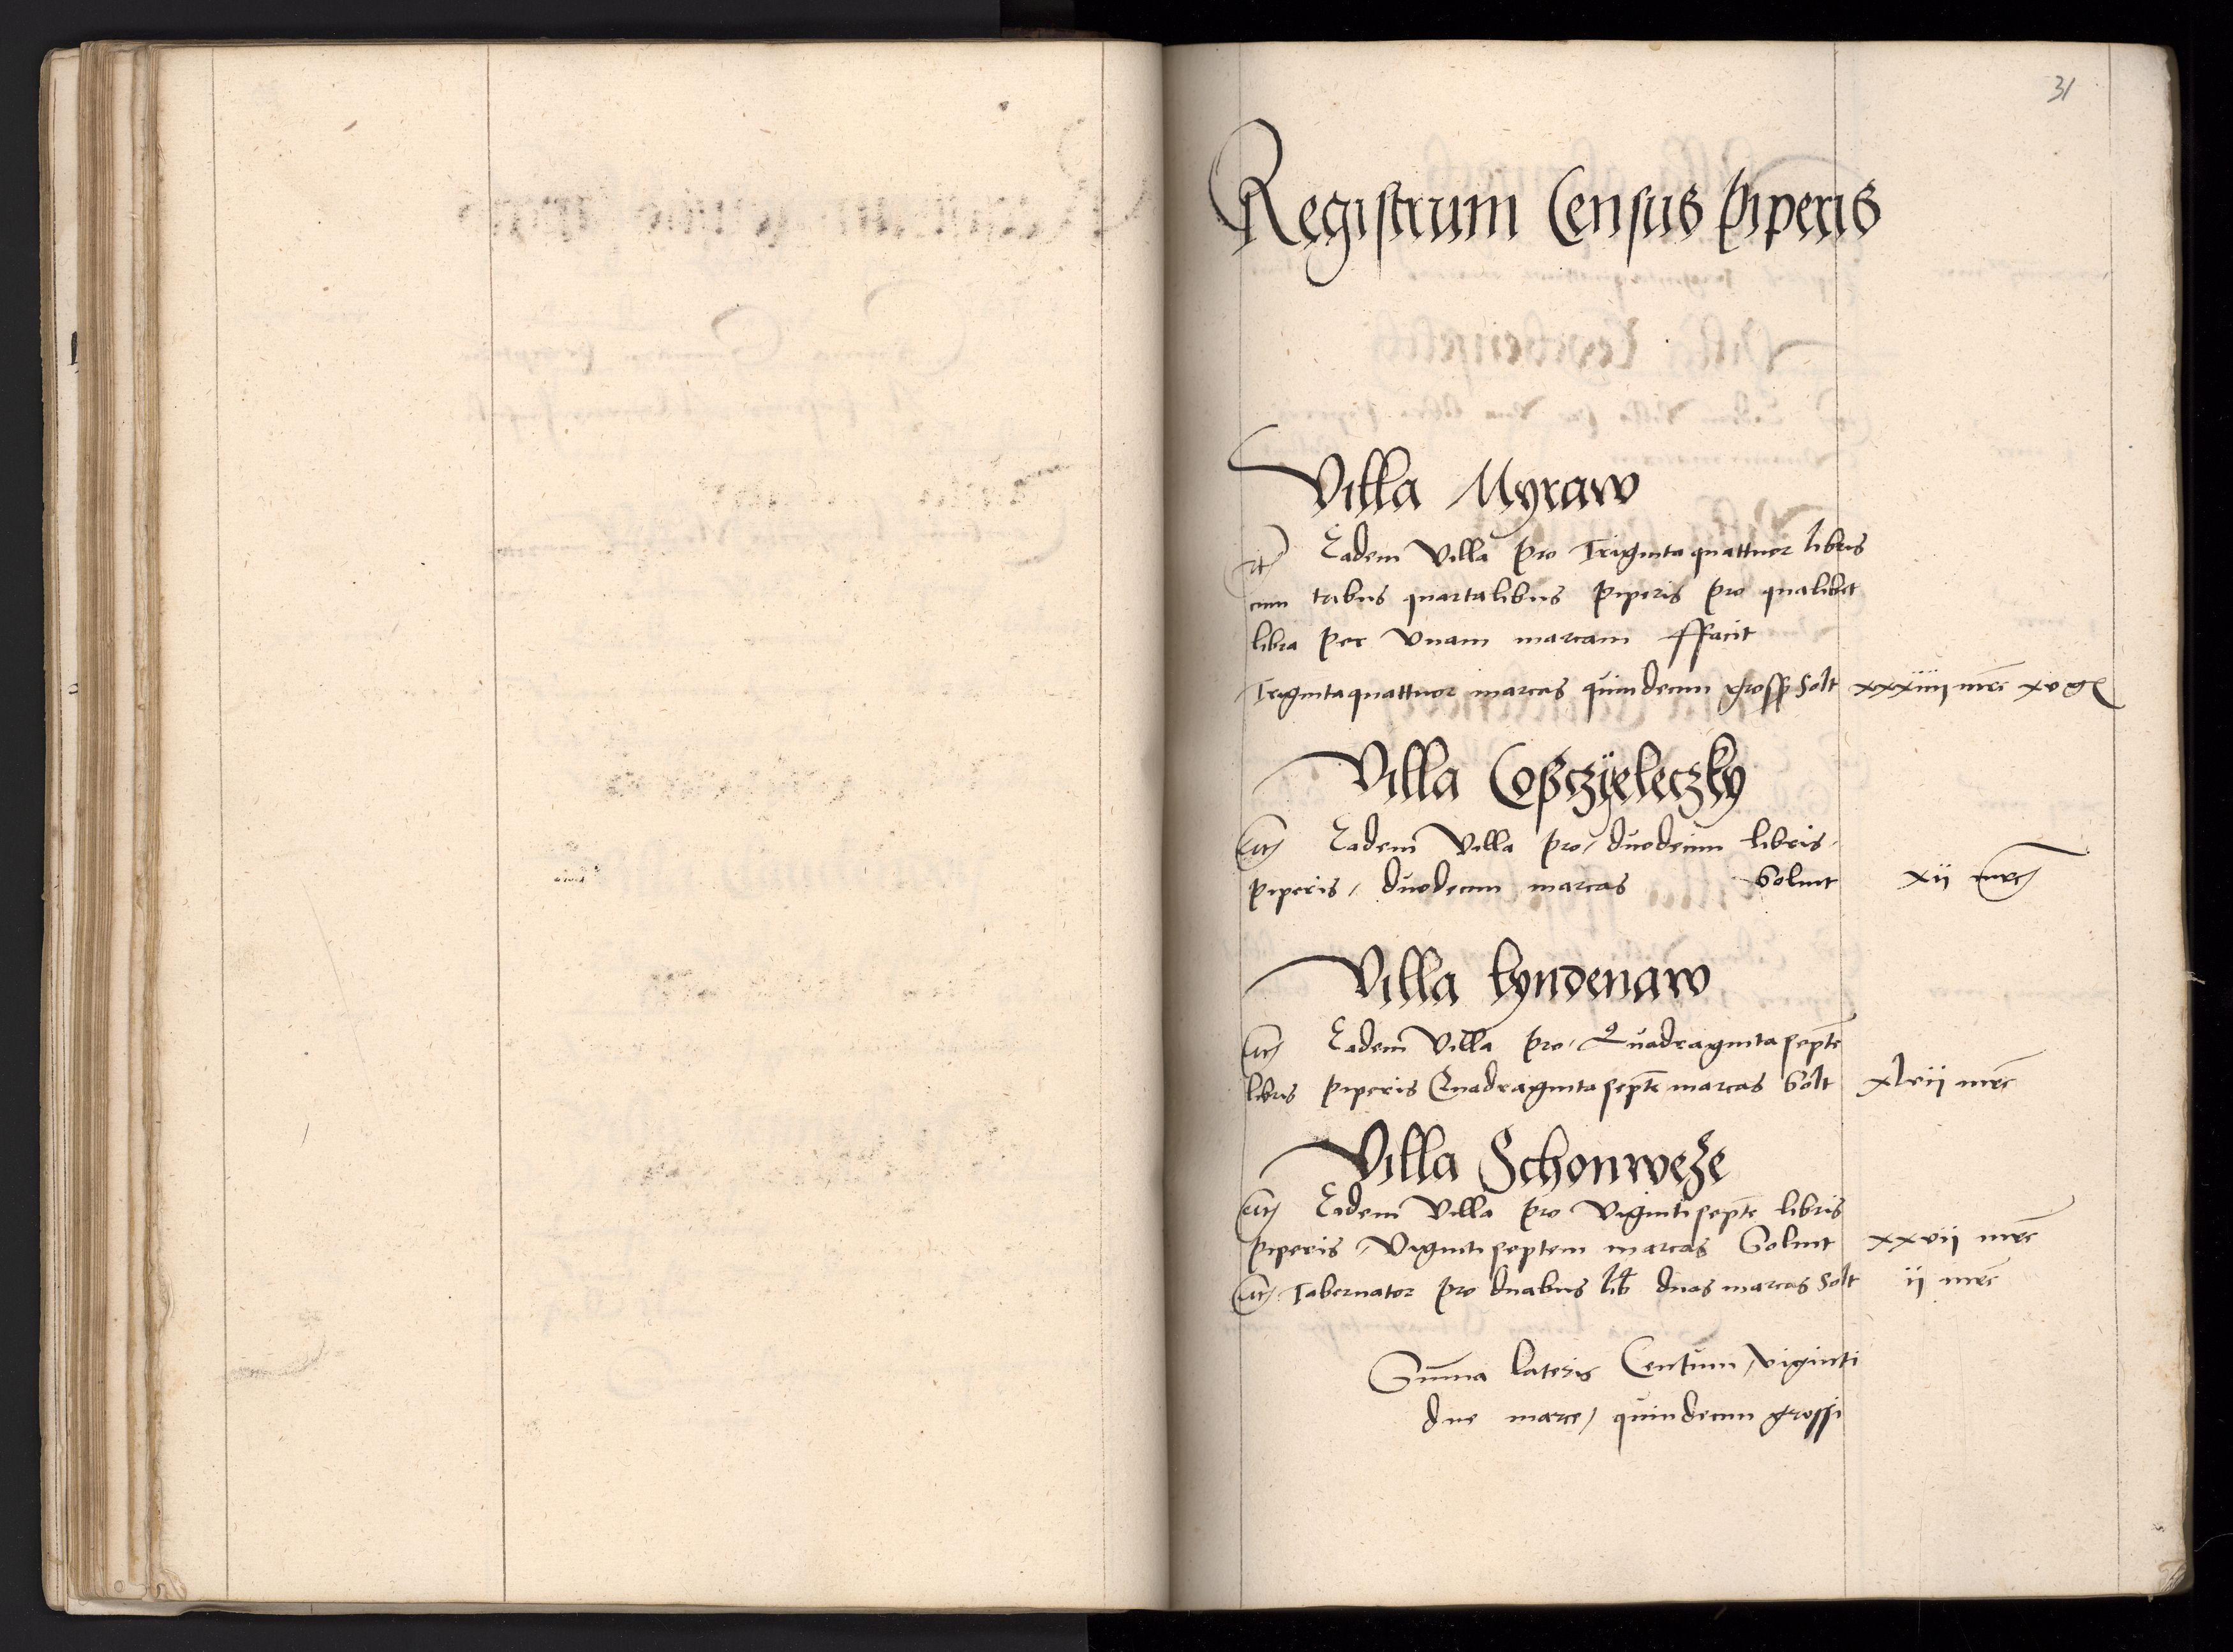 31
Registrum Census piperis
Villa Myraw
It Eadem Villa pro Triginta quattuor libris
cum tribus quartalibus piperis pro qualibet
libra per Vnam marcam ffacit
Trigintaquattuor marcas quindecim gross solt xxxiiii mrc xv gr
Villa Coßczÿeleczky
Itē Eadem Villa pro / duodecim libris
piperis / duodecim marcas Soluit xii mrc
Villa Lyndenaw
Itē Eadem Villa pro / Quadragintaseptē
libris piperis Quadragintaseptē marcas Solt xlvii mrc
Villa Schonweze
Itē Eadem Villa pro Vigintiseptē libris
piperis / Vigintiseptem marcas Soluit xxvii mrc
Itē Tabernator pro duabus lib duas marcas Solt ii mrc
Sūma lateris Centum / viginti
due marce / quindecim grossi